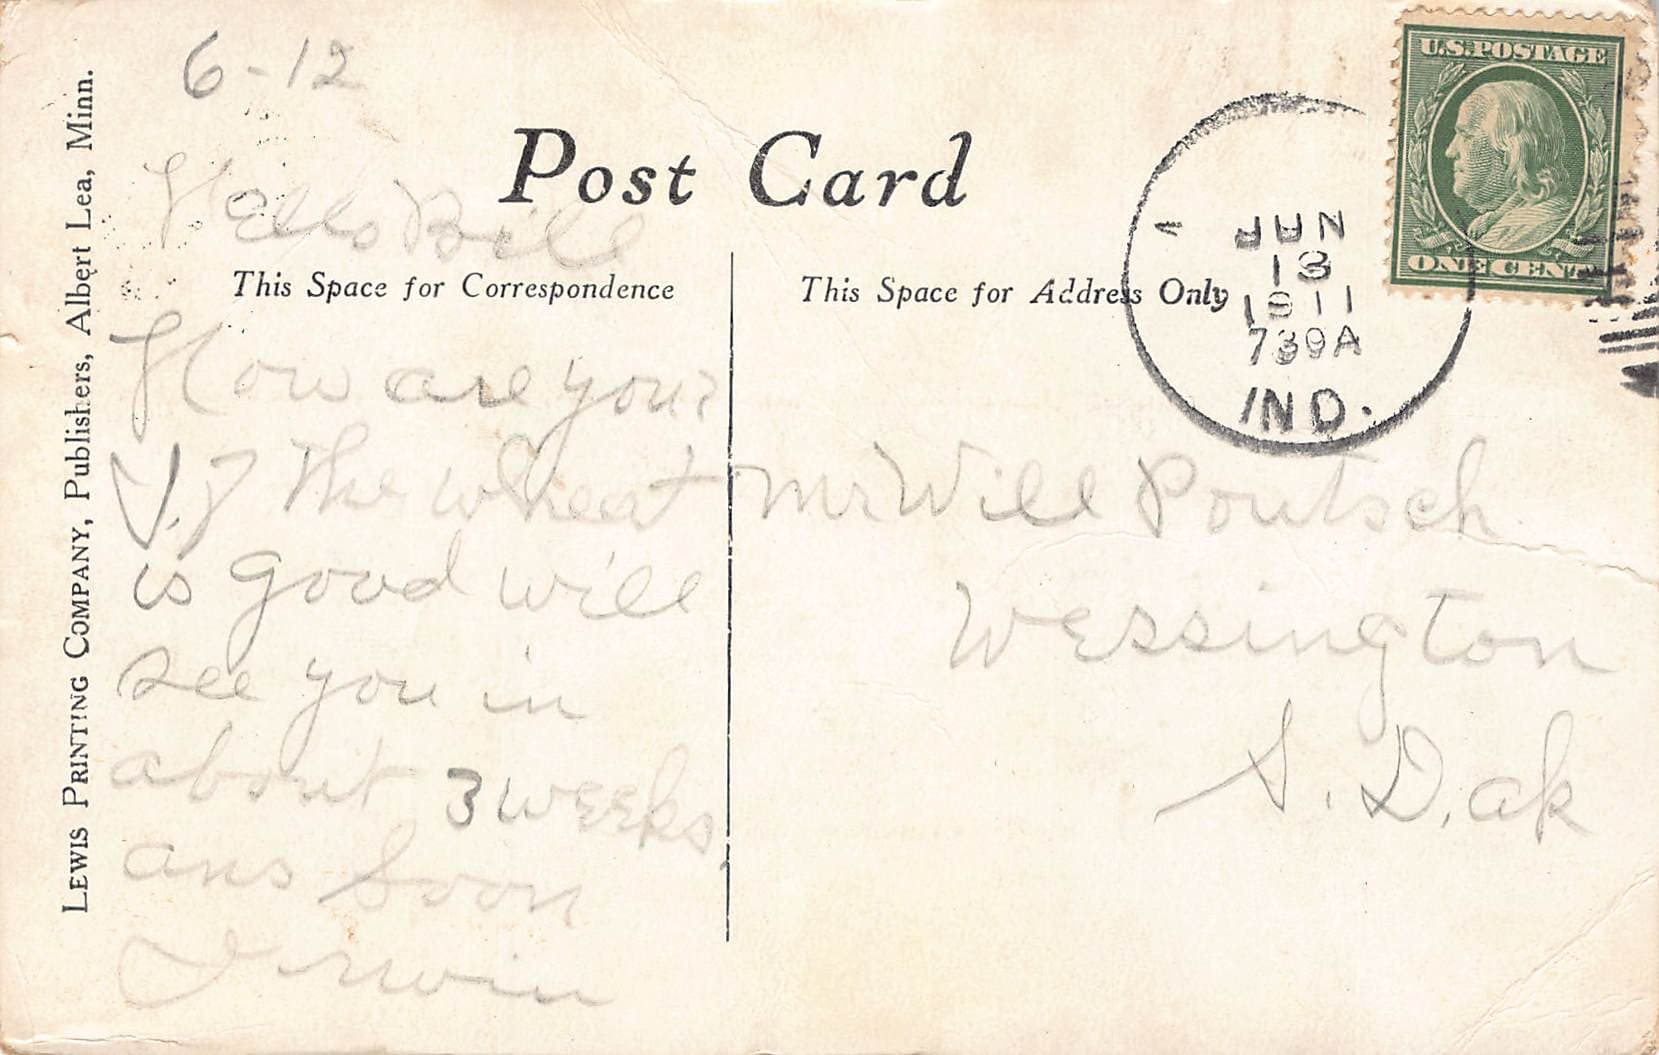 6-12
Post Card
Hello Bill
This Space for Correspondence
How are you?
If The wheat
is good will
see you in
about 3 weeks.
ans Soon
Irwin
LEWIS PRINTING COMPANY, Publishers, Albert Lea, Minn.
This Space for Address Only
Mr Will Poutsch
Wessington
S. Dak
U.S. POSTAGE
ONE CENT
JUN
13
1911
739A
IND.